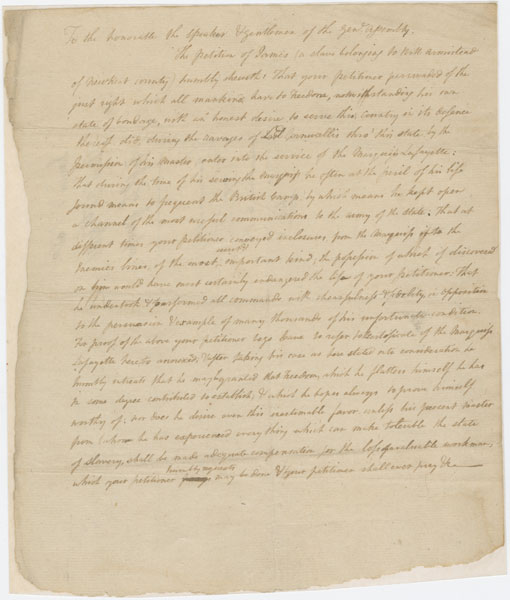 To the honorable the Speaker & gentlemen of the genl Assembly.
The petition of James (a slave belonging to Will Armistead
of Newkent county) humbly sheweth: That your petitioner perswaded of the
just right which all mankind have to Freedom, notwithstanding his own
state of bondage, with an honest desire to serve this Country in its defence
thereof, did, during the ravages of Lord Cornwallis thro' this state, by the
permission of his Master, enter into the service of the Marquiss Lafayette:
That during the time of his serving the Marquiss he often at the peril of his life
found means to frequent the British Camp, by which means he kept open
a channel of the most useful communications to the army of the state. That at
different times your petitioner conveyed inclosures, from the Marquiss into the
Enemies lines, of the most secret & important kind; the possession of which if discovered
on him would have most certainly endangered the life of your petitioner. That
he undertook & performed all commands with chearfulness & fidelity, in opposition
to the persuasion & example of many thousands of his unfortunate condition.
For proof of the above your petitioner begs leave to refer to the certificate of the Marquiss
Lafayette hereto annexed, & after taking his case as here stated into consideration he
humbly intreats that he may be granted that Freedom, which he flatters himself he has
in some degree contributed to establish; & which he hopes always to prove himself
worthy of; nor does he desire even this inestimable favor, unless his present master
from whom he has experienced every thing which can make tolerable the state
of Slavery, shall be made adequate compensation for the loss of a valuable workman;
which your petitioner humbly requests may be done & your petitioner shall ever pray &c